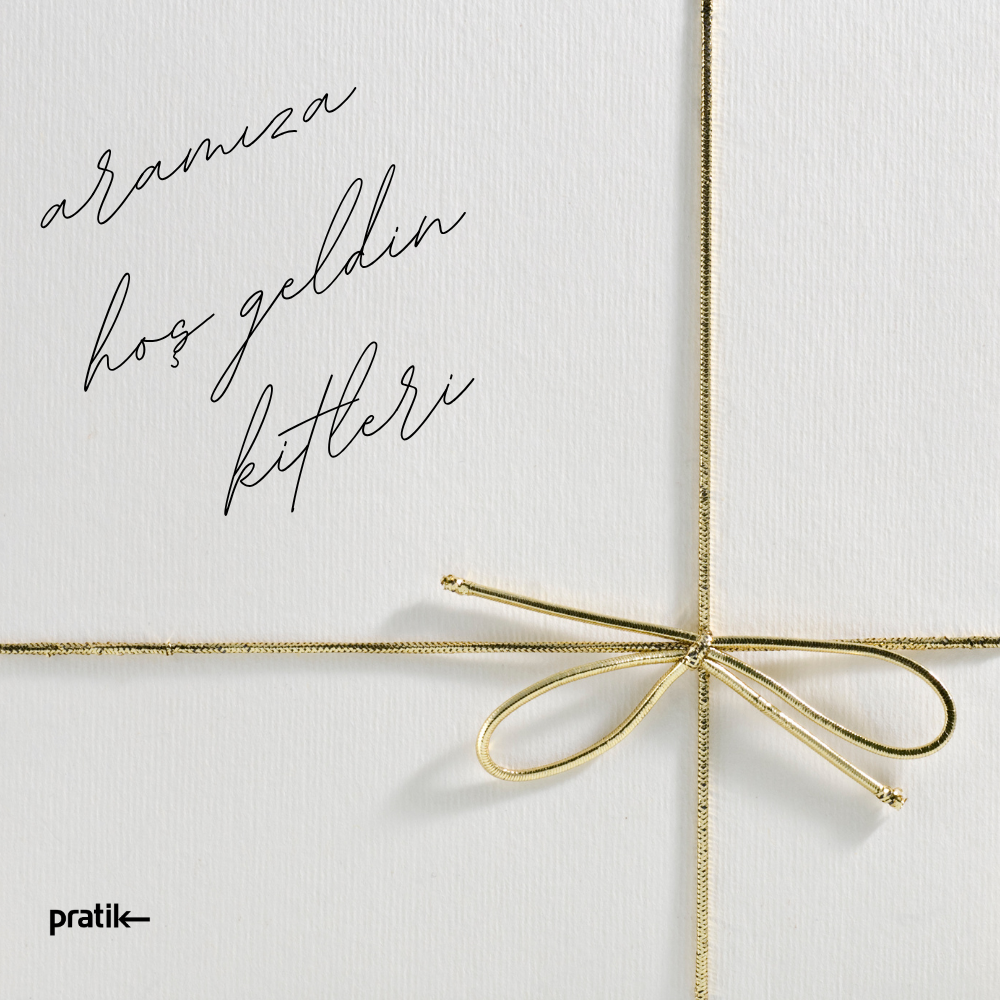 aramıza
hoş geldin
kitleri
pratik